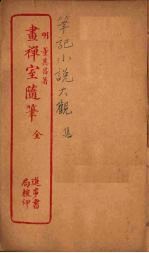 明 董其昌著
畫禪室隨筆 全
進步書局校印
筆記小說大觀 集